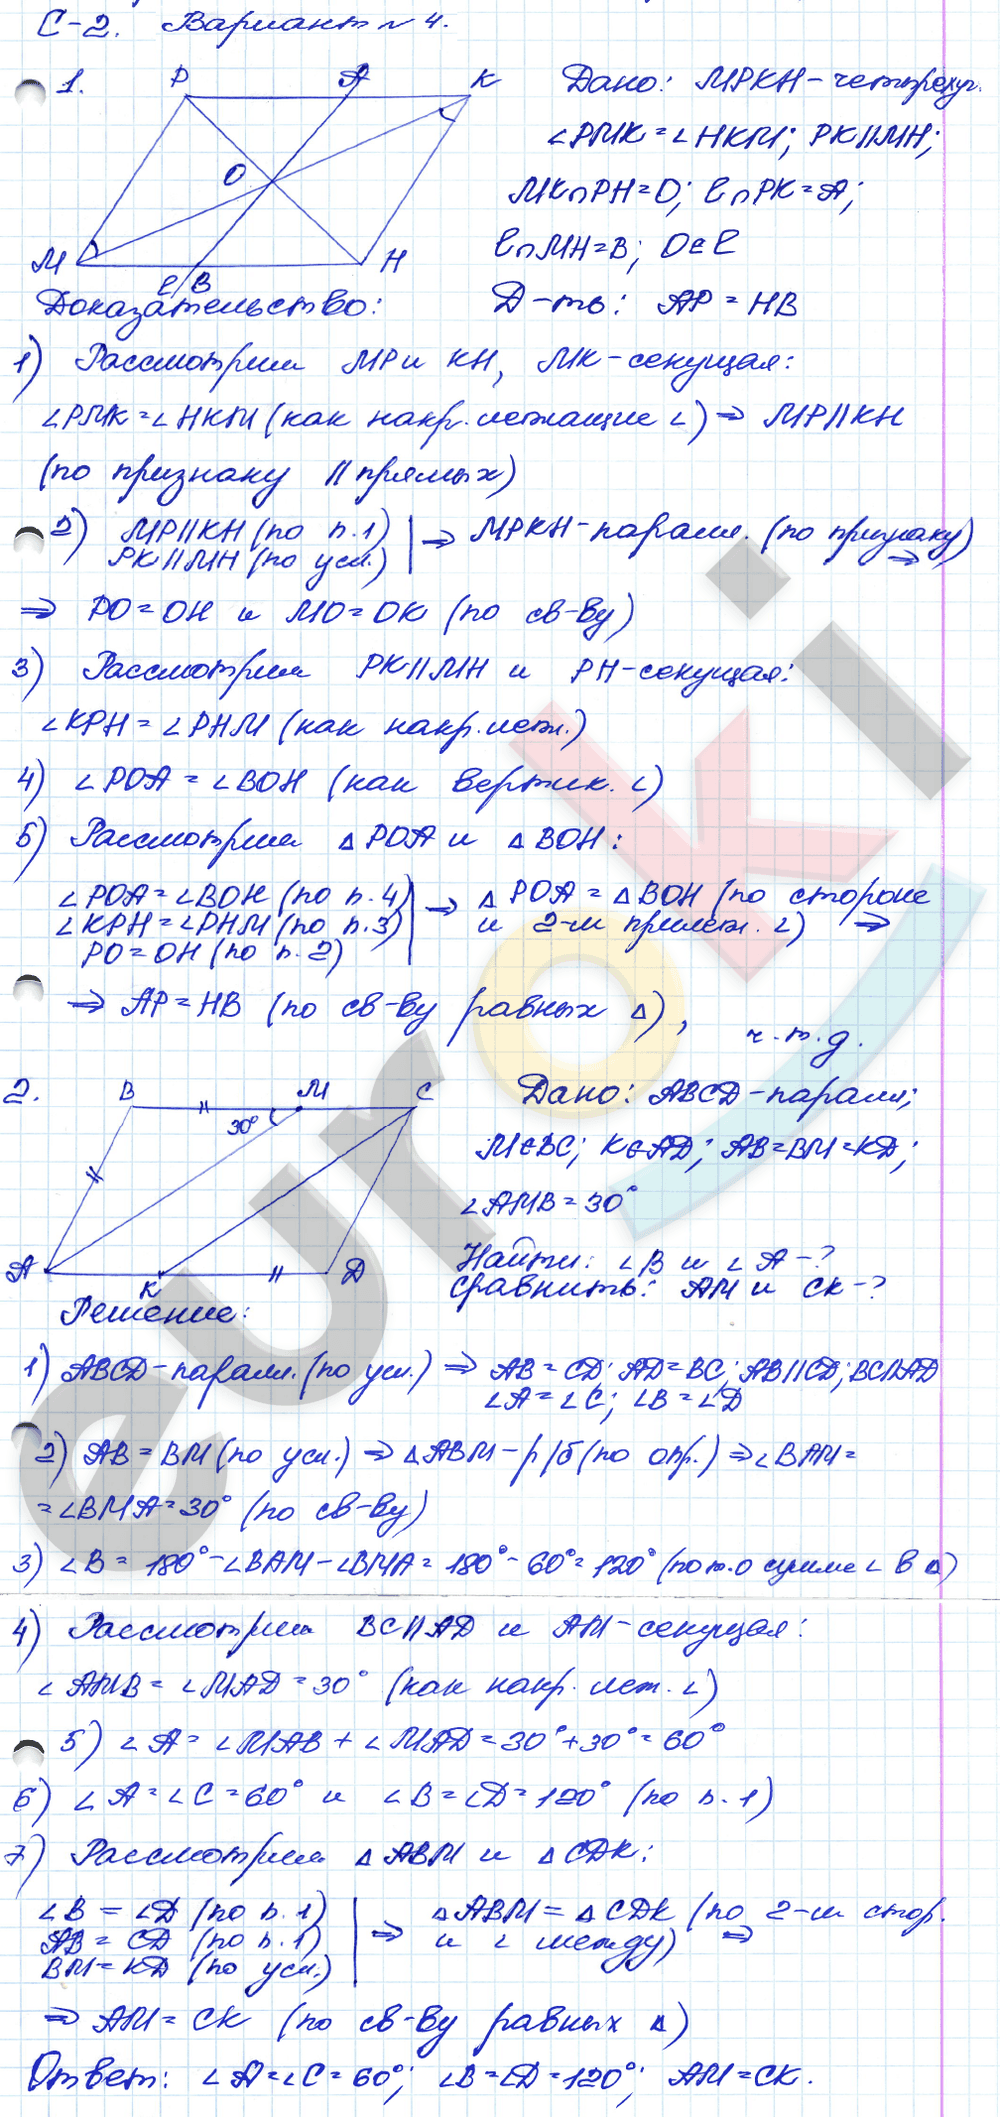 С-2. Вариант № 4.
1.
P A K
O
M H
ℓ B
Дано: MPKH - четырехуг.
∠PMK = ∠HKM; PK ∥ MH;
MK ∩ PH = O; ℓ ∩ PK = A;
ℓ ∩ MH = B; O ∈ ℓ
Д-ть: AP = HB
Доказательство:
1) Рассмотрим MP и KH, MK - секущая:
∠PMK = ∠HKM (как накр. лежащие ∠) ⇒ MP ∥ KH
(по признаку ∥ прямых)
2) MP ∥ KH (по п.1) | ⇒ MPKH - паралл. (по признаку) ⇒
PK ∥ MH (по усл.)
⇒ PO = OH и MO = OK (по св-ву)
3) Рассмотрим PK ∥ MH и PH - секущая:
∠KPH = ∠PHM (как накр. леж.)
4) ∠POA = ∠BOH (как вертик. ∠)
5) Рассмотрим △POA и △BOH:
∠POA = ∠BOH (по п.4) | ⇒ △POA = △BOH (по стороне
∠KPH = ∠PHM (по п.3) и 2-м прилеж. ∠) ⇒
PO = OH (по п.2)
⇒ AP = HB (по св-ву равных △), ч.т.д.
2.
B M C
30°
A K D
Дано: ABCD - паралл;
M ∈ BC; K ∈ AD; AB = BM = KD;
∠AMB = 30°
Найти: ∠B и ∠A - ?
Сравнить: AM и CK - ?
Решение:
1) ABCD - паралл. (по усл.) ⇒ AB = CD; AD = BC; AB ∥ CD; BC ∥ AD
∠A = ∠C; ∠B = ∠D
2) AB = BM (по усл.) ⇒ △ABM - р/б (по опр.) ⇒ ∠BAM =
= ∠BMA = 30° (по св-ву)
3) ∠B = 180° - ∠BAM - ∠BMA = 180° - 60° = 120° (по т. о сумме ∠ в △)
4) Рассмотрим BC ∥ AD и AM - секущая:
∠AMB = ∠MAD = 30° (как накр. леж. ∠)
5) ∠A = ∠MAB + ∠MAD = 30° + 30° = 60°
6) ∠A = ∠C = 60° и ∠B = ∠D = 120° (по п.1)
7) Рассмотрим △ABM и △CDK:
∠B = ∠D (по п.1) | ⇒ △ABM = △CDK (по 2-м стор.
AB = CD (по п.1) и ∠ между) ⇒
BM = KD (по усл.)
⇒ AM = CK (по св-ву равных △)
Ответ: ∠A = ∠C = 60°; ∠B = ∠D = 120°; AM = CK.
euroki